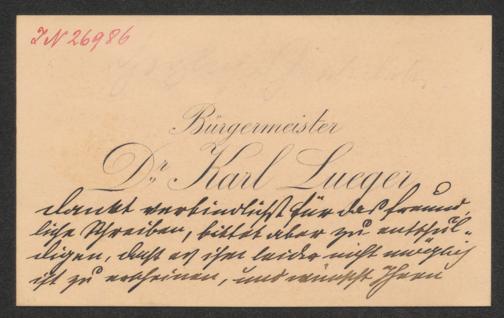 IN 26986
Bürgermeister
Dr. Karl Lueger
dankt verbindlichst für das freund-
liche Schreiben, bittet aber zu entschul-
digen, daß es ihm leider nicht möglich
ist zu erscheinen, und wünscht Ihnen